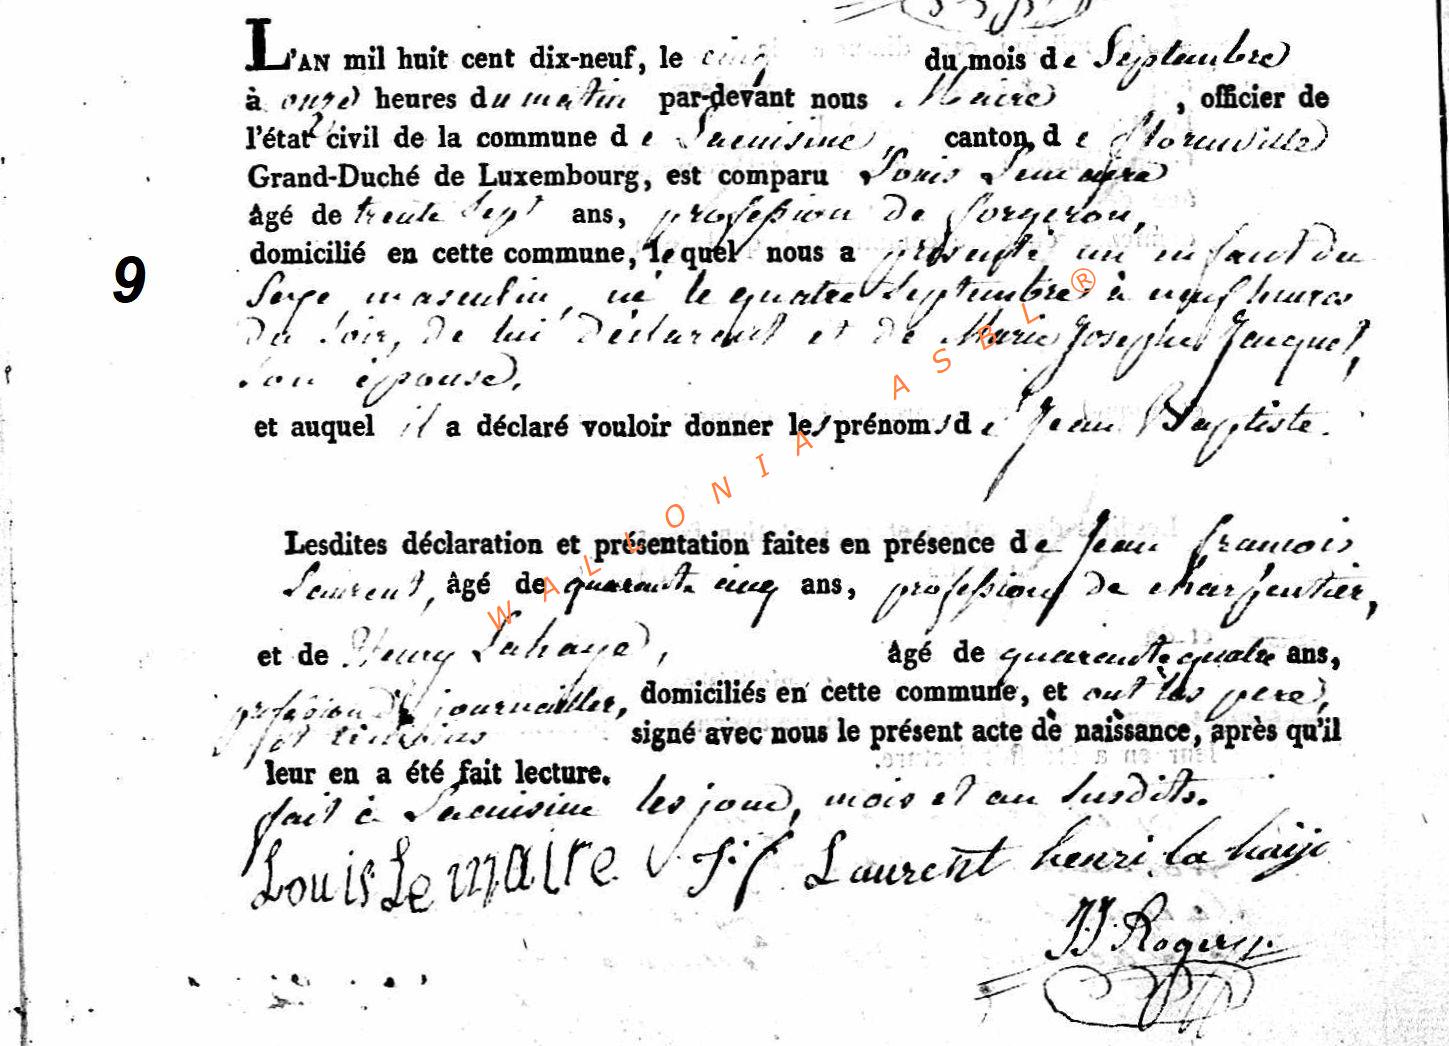 L'AN mil huit cent dix-neuf, le cinq du mois de Septembre
à onze heures du matin par-devant nous Maire, officier de
l'état civil de la commune de Lacuisine, canton de Florenville
Grand-Duché de Luxembourg, est comparu Louis Lemaire
âgé de trente sept ans, profession de forgeron,
domicilié en cette commune, lequel nous a présenté un enfant du
9
Sexe masculin, né le quatre Septembre à neuf heures
du Soir, de lui déclarant et de Marie Josephe Jacquet,
Son épouse,
et auquel il a déclaré vouloir donner les prénoms de Jean Baptiste.
WALLONIA ASBL ®
Lesdites déclaration et présentation faites en présence de Jean francois
Laurent, âgé de quarante cinq ans, profession de charpentier,
et de Henry Lahaye, âgé de quarante quatre ans,
profession de journallier, domiciliés en cette commune, et ont les pere,
et témoins signé avec nous le présent acte de naissance, après qu'il
leur en a été fait lecture.
fait à Lacuisine les jour, mois et an susdits.
Louis Le maire J: f Laurent henri la haije
JJ Roguin